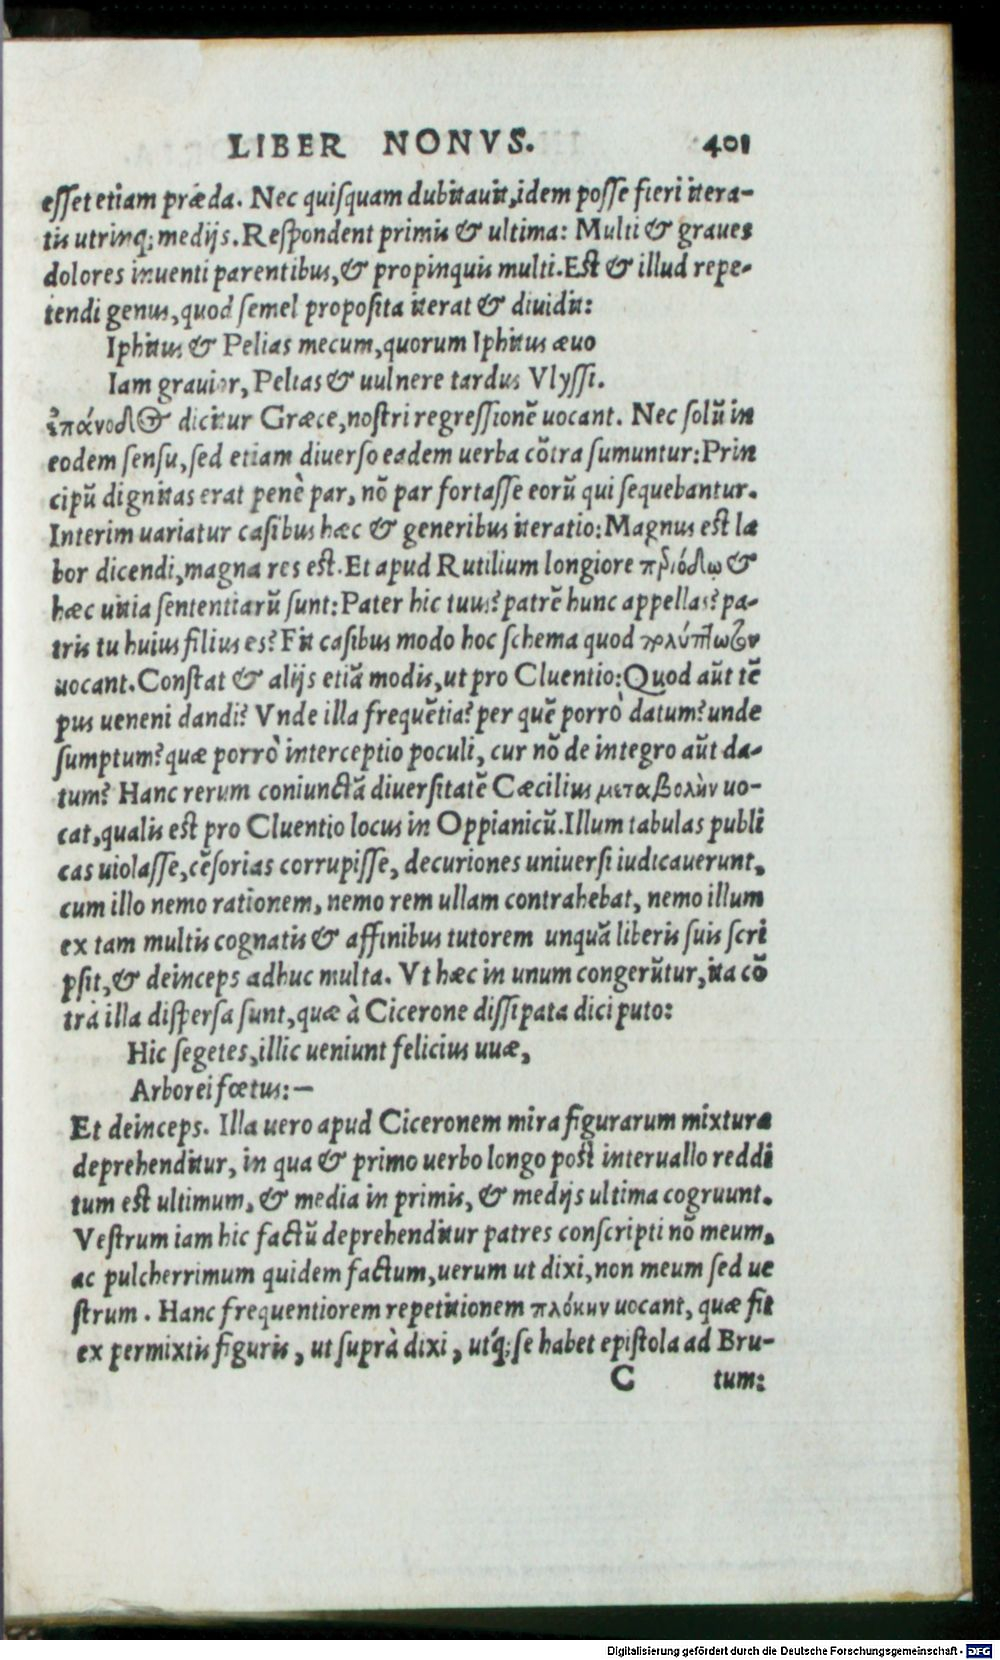 LIBER NONVS. 401
eſſet etiam præda. Nec quiſquam dubitauit, idem poſſe fieri itera-
tis utrinq; medijs. Reſpondent primis & ultima: Multi & graues
dolores inuenti parentibus, & propinquis multi. Eſt & illud repe-
tendi genus, quod ſemel propoſita iterat & diuidit:
Iphitus & Pelias mecum, quorum Iphitus æuo
Iam grauior, Pelias & uulnere tardus Vlyſſi.
ἐπάνοδος dicitur Græce, noſtri regreſſionē uocant. Nec ſolū in
eodem ſenſu, ſed etiam diuerſo eadem uerba cōtra ſumuntur: Prin
cipū dignitas erat penè par, nō par fortaſſe eorū qui ſequebantur.
Interim uariatur caſibus hæc & generibus iteratio: Magnus eſt la
bor dicendi, magna res eſt. Et apud Rutilium longiore περιόδῳ &
hæc uitia ſententiarū ſunt: Pater hic tuus? patrē hunc appellas? pa-
tris tu huius filius es? Fit caſibus modo hoc ſchema quod πολύπτωτον
uocant. Conſtat & alijs etiā modis, ut pro Cluentio: Quod aūt tē
pus ueneni dandi? Vnde illa frequētia? per quē porrò datum? unde
ſumptum? quæ porrò interceptio poculi, cur nō de integro aūt da-
tum? Hanc rerum coniunctā diuerſitatē Cæcilius μεταβολὴν uo-
cat, qualis eſt pro Cluentio locus in Oppianicū. Illum tabulas publi
cas uiolaſſe, cēſorias corrupiſſe, decuriones uniuerſi iudicauerunt,
cum illo nemo rationem, nemo rem ullam contrahebat, nemo illum
ex tam multis cognatis & affinibus tutorem unquā liberis ſuis ſcri
pſit, & deinceps adhuc multa. Vt hæc in unum congerūtur, ita cō
trà illa diſperſa ſunt, quæ à Cicerone diſſipata dici puto:
Hic ſegetes, illic ueniunt felicius uuæ,
Arborei fœtus:—
Et deinceps. Illa uero apud Ciceronem mira figurarum mixtura
deprehenditur, in qua & primo uerbo longo poſt interuallo reddi
tum eſt ultimum, & media in primis, & medijs ultima cogruunt.
Veſtrum iam hic factū deprehenditur patres conſcripti nō meum,
ac pulcherrimum quidem factum, uerum ut dixi, non meum ſed ue
ſtrum. Hanc frequentiorem repetitionem πλόκην uocant, quæ fit
ex permixtis figuris, ut ſuprà dixi, utq́; ſe habet epiſtola ad Bru-
C tum:
Digitalisierung gefördert durch die Deutsche Forschungsgemeinschaft - DFG